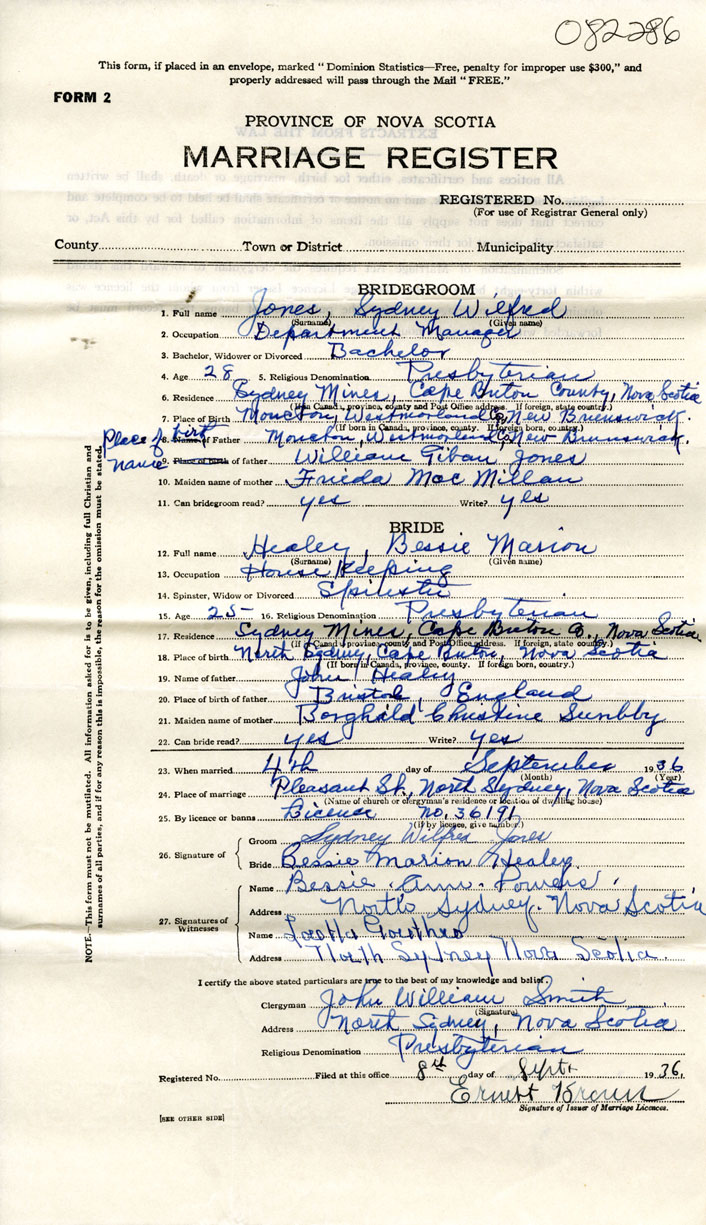 082286
This form, if placed in an envelope, marked "Dominion Statistics—Free, penalty for improper use $300," and
properly addressed will pass through the Mail "FREE."
FORM 2
PROVINCE OF NOVA SCOTIA
MARRIAGE REGISTER
REGISTERED No.
(For use of Registrar General only)
County Town or District Municipality
BRIDEGROOM
1. Full name Jones, Sydney Wilfred
(Surname) (Given name)
2. Occupation Department Manager
3. Bachelor, Widower or Divorced Bachelor
4. Age 28 5. Religious Denomination Presbyterian
6. Residence Sydney Mines, Cape Breton County, Nova Scotia
(If in Canada, province, county and Post Office address. If foreign, state country.)
7. Place of Birth Moncton, Westmorland Co New Brunswick.
(If born in Canada, province, county. If foreign born, country.)
Place of birth
8. Name of Father Moncton, Westmorland Co New Brunswick.
name 9. Place of birth of father William Jones
10. Maiden name of mother Frieda Mac Millan
11. Can bridegroom read? yes Write? yes
BRIDE
12. Full name Healey, Bessie Marion
(Surname) (Given name)
13. Occupation House Keeping
14. Spinster, Widow or Divorced Spinster
15. Age 25 16. Religious Denomination Presbyterian
17. Residence Sydney Mines, Cape Breton Co., Nova Scotia
(If in Canada, province, county and Post Office address. If foreign, state country.)
18. Place of birth North Sydney, Cape Breton, Nova Scotia
(If born in Canada, province, county. If foreign born, country.)
19. Name of father John Healey
20. Place of birth of father Bristol, England
21. Maiden name of mother Borghald Christine Sunbby
22. Can bride read? yes Write? yes
23. When married 4th day of September 1936
(Month) (Year)
24. Place of marriage Pleasant St., North Sydney, Nova Scotia
(Name of church or clergyman's residence or location of dwelling house)
25. By licence or banns Licence no. 36191
(If by licence, give number)
26. Signature of
Groom Sydney Wilfred Jones
Bride Bessie Marion Healey
27. Signatures of Witnesses
Name Bessie Ann
Address North Sydney. Nova Scotia
Name
Address North Sydney Nova Scotia.
I certify the above stated particulars are true to the best of my knowledge and belief.
Clergyman John William Smith
(Signature)
Address North Sydney, Nova Scotia
Religious Denomination Presbyterian
Registered No. Filed at this office 8th day of Sept. 1936.
Ernest
Signature of Issuer of Marriage Licences.
[SEE OTHER SIDE]
NOTE.—This form must not be mutilated. All information asked for is to be given, including full Christian and
surnames of all parties, and if for any reason this is impossible, the reason for the omission must be stated.